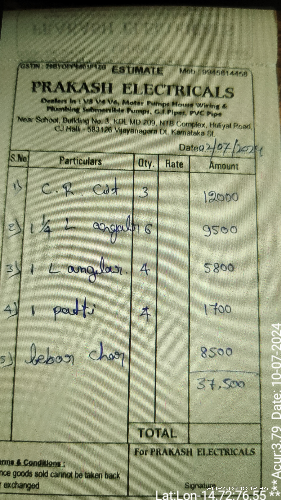 ESTIMATE
PRAKASH ELECTRICALS
Dealers in : V3 V4 V6, Motor Pumps House Wiring &
Plumbing Submersible Pumps, G.I Pipes, PVC Pipe
Near School, Building No. 3, KDL MD 209, NTB Complex, Huliyal Road,
CJ Halli - 583126 Vijayanagara Dt. Karnataka St.
Date: 2/07/2024
S.No Particulars Qty. Rate Amount
1) C.R. 3 12000
2) 1 1/4 L angular 6 9500
3) 1 L angular 4 5800
4) 1 patti 4 1700
5) lebar char 8500
37,500
TOTAL
Terms & Conditions : For PRAKASH ELECTRICALS
Once goods sold cannot be taken back
or exchanged Signature
Lat Lon-14.72,76.55
***Acur:3.79 Date: 10-07-2024